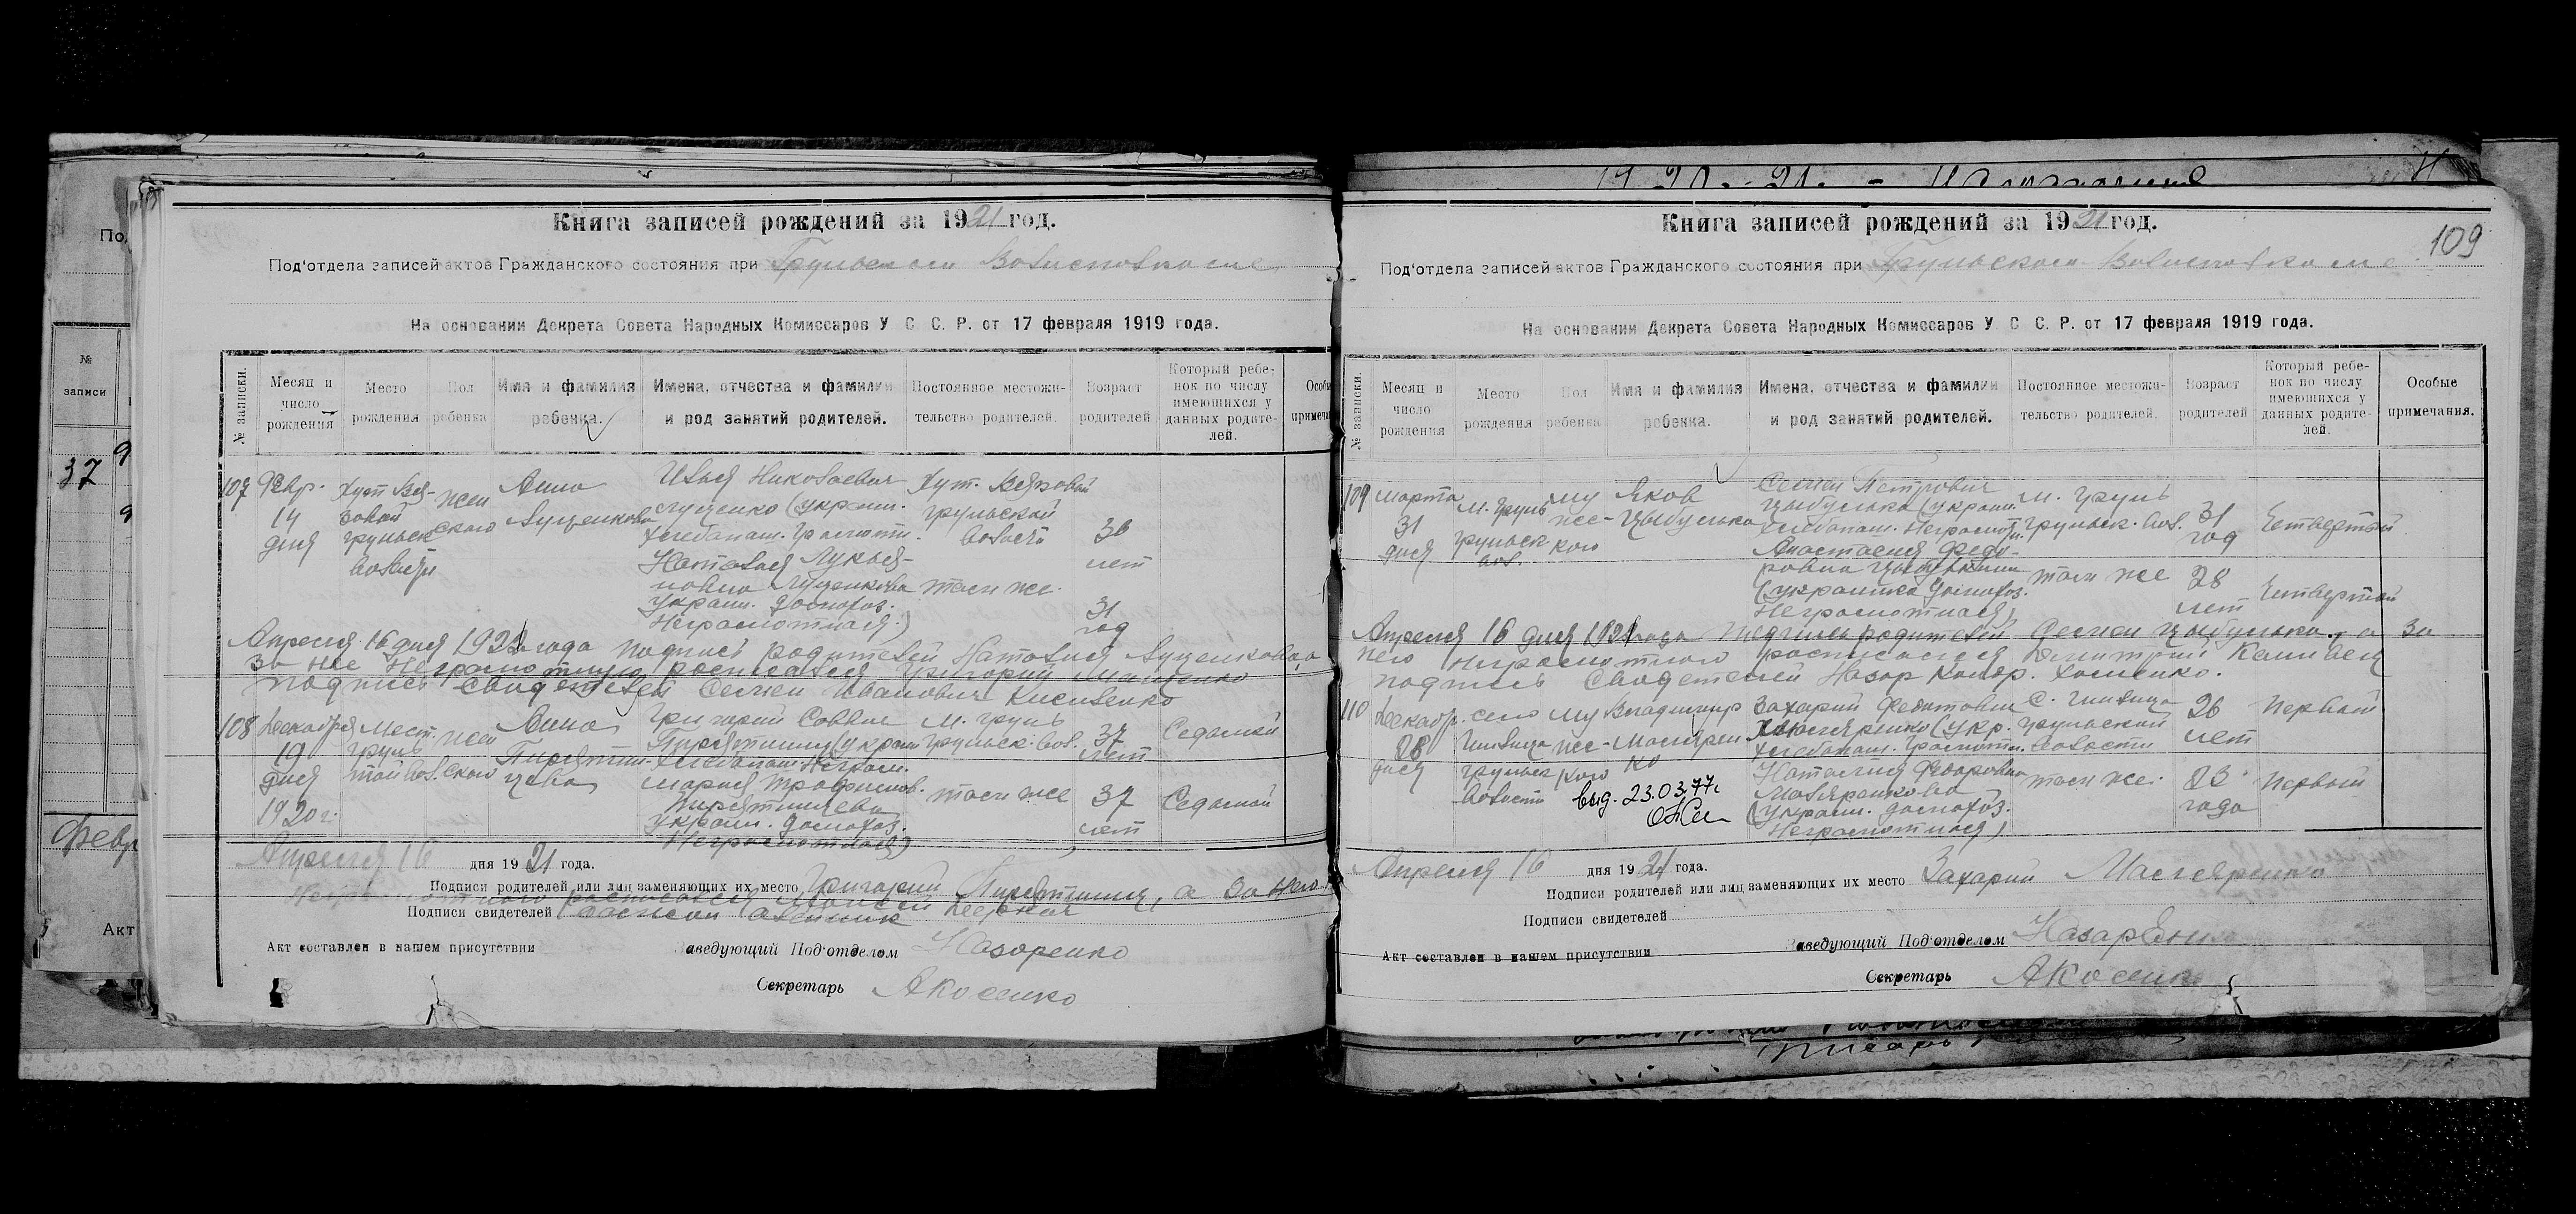 По
№
записи
37
Февр
Акт
Книга записей рождений за 1921 год.
Под'отдела записей актов Гражданского состояния при Груньском Волисполкоме
На основании Декрета Совета Народных Комиссаров У С С. Р. от 17 февраля 1919 года.
№ записи.
Месяц и число рождения
Место рождения
Пол ребенка
Имя и фамилия ребенка.
Имена, отчества и фамилии и род занятий родителей.
Постоянное местожительство родителей.
Возраст родителей
Который ребенок по числу имеющихся у данных родителей.
107 Февр. 14 дня
Хут
груньск волости
женского
Анна Луценкова
Илья Николаевич
Луценко (украин.
хлебопаш. Грамотн.
Наталия Лукья-
новна Луценкова
Украин. домохоз.
Неграмотная)
Хут.
груньской
волости
там же.
36
лет
31
год
Апреля 16 дня 1921 года подпись родителей Наталия Луценкова, а
за нее неграмотную росписался Григорий
подпись свидетелей Семен Иванович Кисиленко
108 Декабря 19 дня 1920 г.
Мест. Грунь той вол.
женского
Анна
Пирятин-
цева
Григорий Саввич
Пирятинец (украин
хлебопаш Неграм.
Мария Трофимов.
Пирятинцева
Украин. домохоз.
Неграмотная)
м. Грунь
Груньск. вол.
там же
37
лет
37
лет
Седьмой
Седьмой
Апреля 16 дня 1921 года.
Подписи родителей или лиц заменяющих их место Григорий Пирятинец, а за него
росписался Моисей
Подписи свидетелей
Акт составлен в нашем присутствии
Заведующий Под'отделом Назаренко
Секретарь Якосенко
109
Книга записей рождений за 1921 год.
Под'отдела записей актов Гражданского состояния при Груньском Волисполкоме
На основании Декрета Совета Народных Комиссаров У С С. Р. от 17 февраля 1919 года.
№ записи.
Месяц и число рождения
Место рождения
Пол ребенка
Имя и фамилия ребенка.
Имена, отчества и фамилии и род занятий родителей.
Постоянное местожительство родителей.
Возраст родителей
Который ребенок по числу имеющихся у данных родителей.
Особые примечания.
109 Марта 31 дня
м. Грунь груньск вол.
мужеского
Яков
Цыбулько
Семен Петрович
Цыбулько (украин.
хлебопаш. Неграмотн.
Анастасия Федо-
ровна Цыбулькина
(украинка домохоз.
Неграмотная)
м. Грунь
Груньск. вол.
там же
31
год
28
лет
Четвертый
Четвертый
Апреля 16 дня 1921 года подпись родителей Семен Цыбулько, а за
него неграмотного росписался Дмитрий
подпись свидетелей Назар
110 Декабр. 28 дня
село груньск волости
мужеского
Владимир
Масляренко
Захарий Федотович
Масляренко (укр.
хлебопаш. Грамотн.
Наталия Федоровна
Масляренкова
(украин. домохоз.
Неграмотная)
с.
груньской
волости
там же.
26
лет
23
года
Первый
Первый
выд. 23.03.77г.
Апреля 16 дня 1921 года.
Подписи родителей или лиц заменяющих их место Захарий Масляренко
Подписи свидетелей
Акт составлен в нашем присутствии
Заведующий Под'отделом Назаренко
Секретарь Якосенко